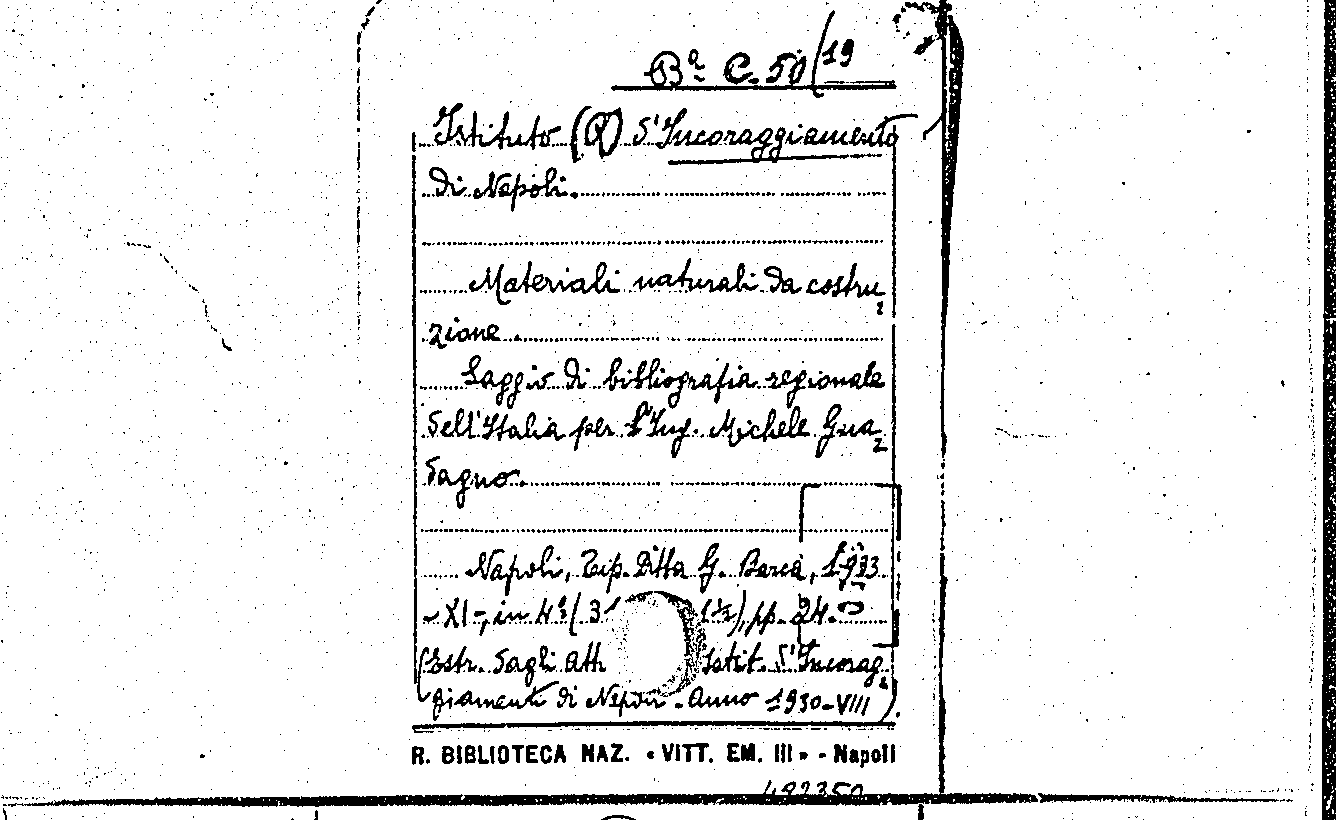 Bª C. 50/19
Istituto (R) d'Incoraggiamento
di Napoli.
Materiali naturali da costru=
zione.
Saggio di bibliografia regionale
dell'Italia per l'Ing. Michele Gua=
dagno.
Napoli, Tip. Ditta G. Barca, 1933
- XI -, in 4º ( 3 ½), pp. 24.
(Estr. dagli Atti Istit. d'Incorag=
giamento di Napoli - Anno 1930-VIII).
R. BIBLIOTECA NAZ. « VITT. EM. III » - Napoli
492350